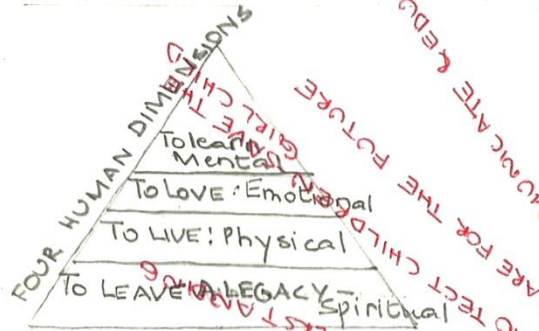 FOUR HUMAN DIMENSIONS
To learn
Mental
To LOVE: Emotional
To LIVE: Physical
To LEAVE A LEGACY-
Spiritual
SAVE THE
GIRL CHILD
TECT CHILDREN
ARE FOR THE FUTURE
UNICATE & EDU